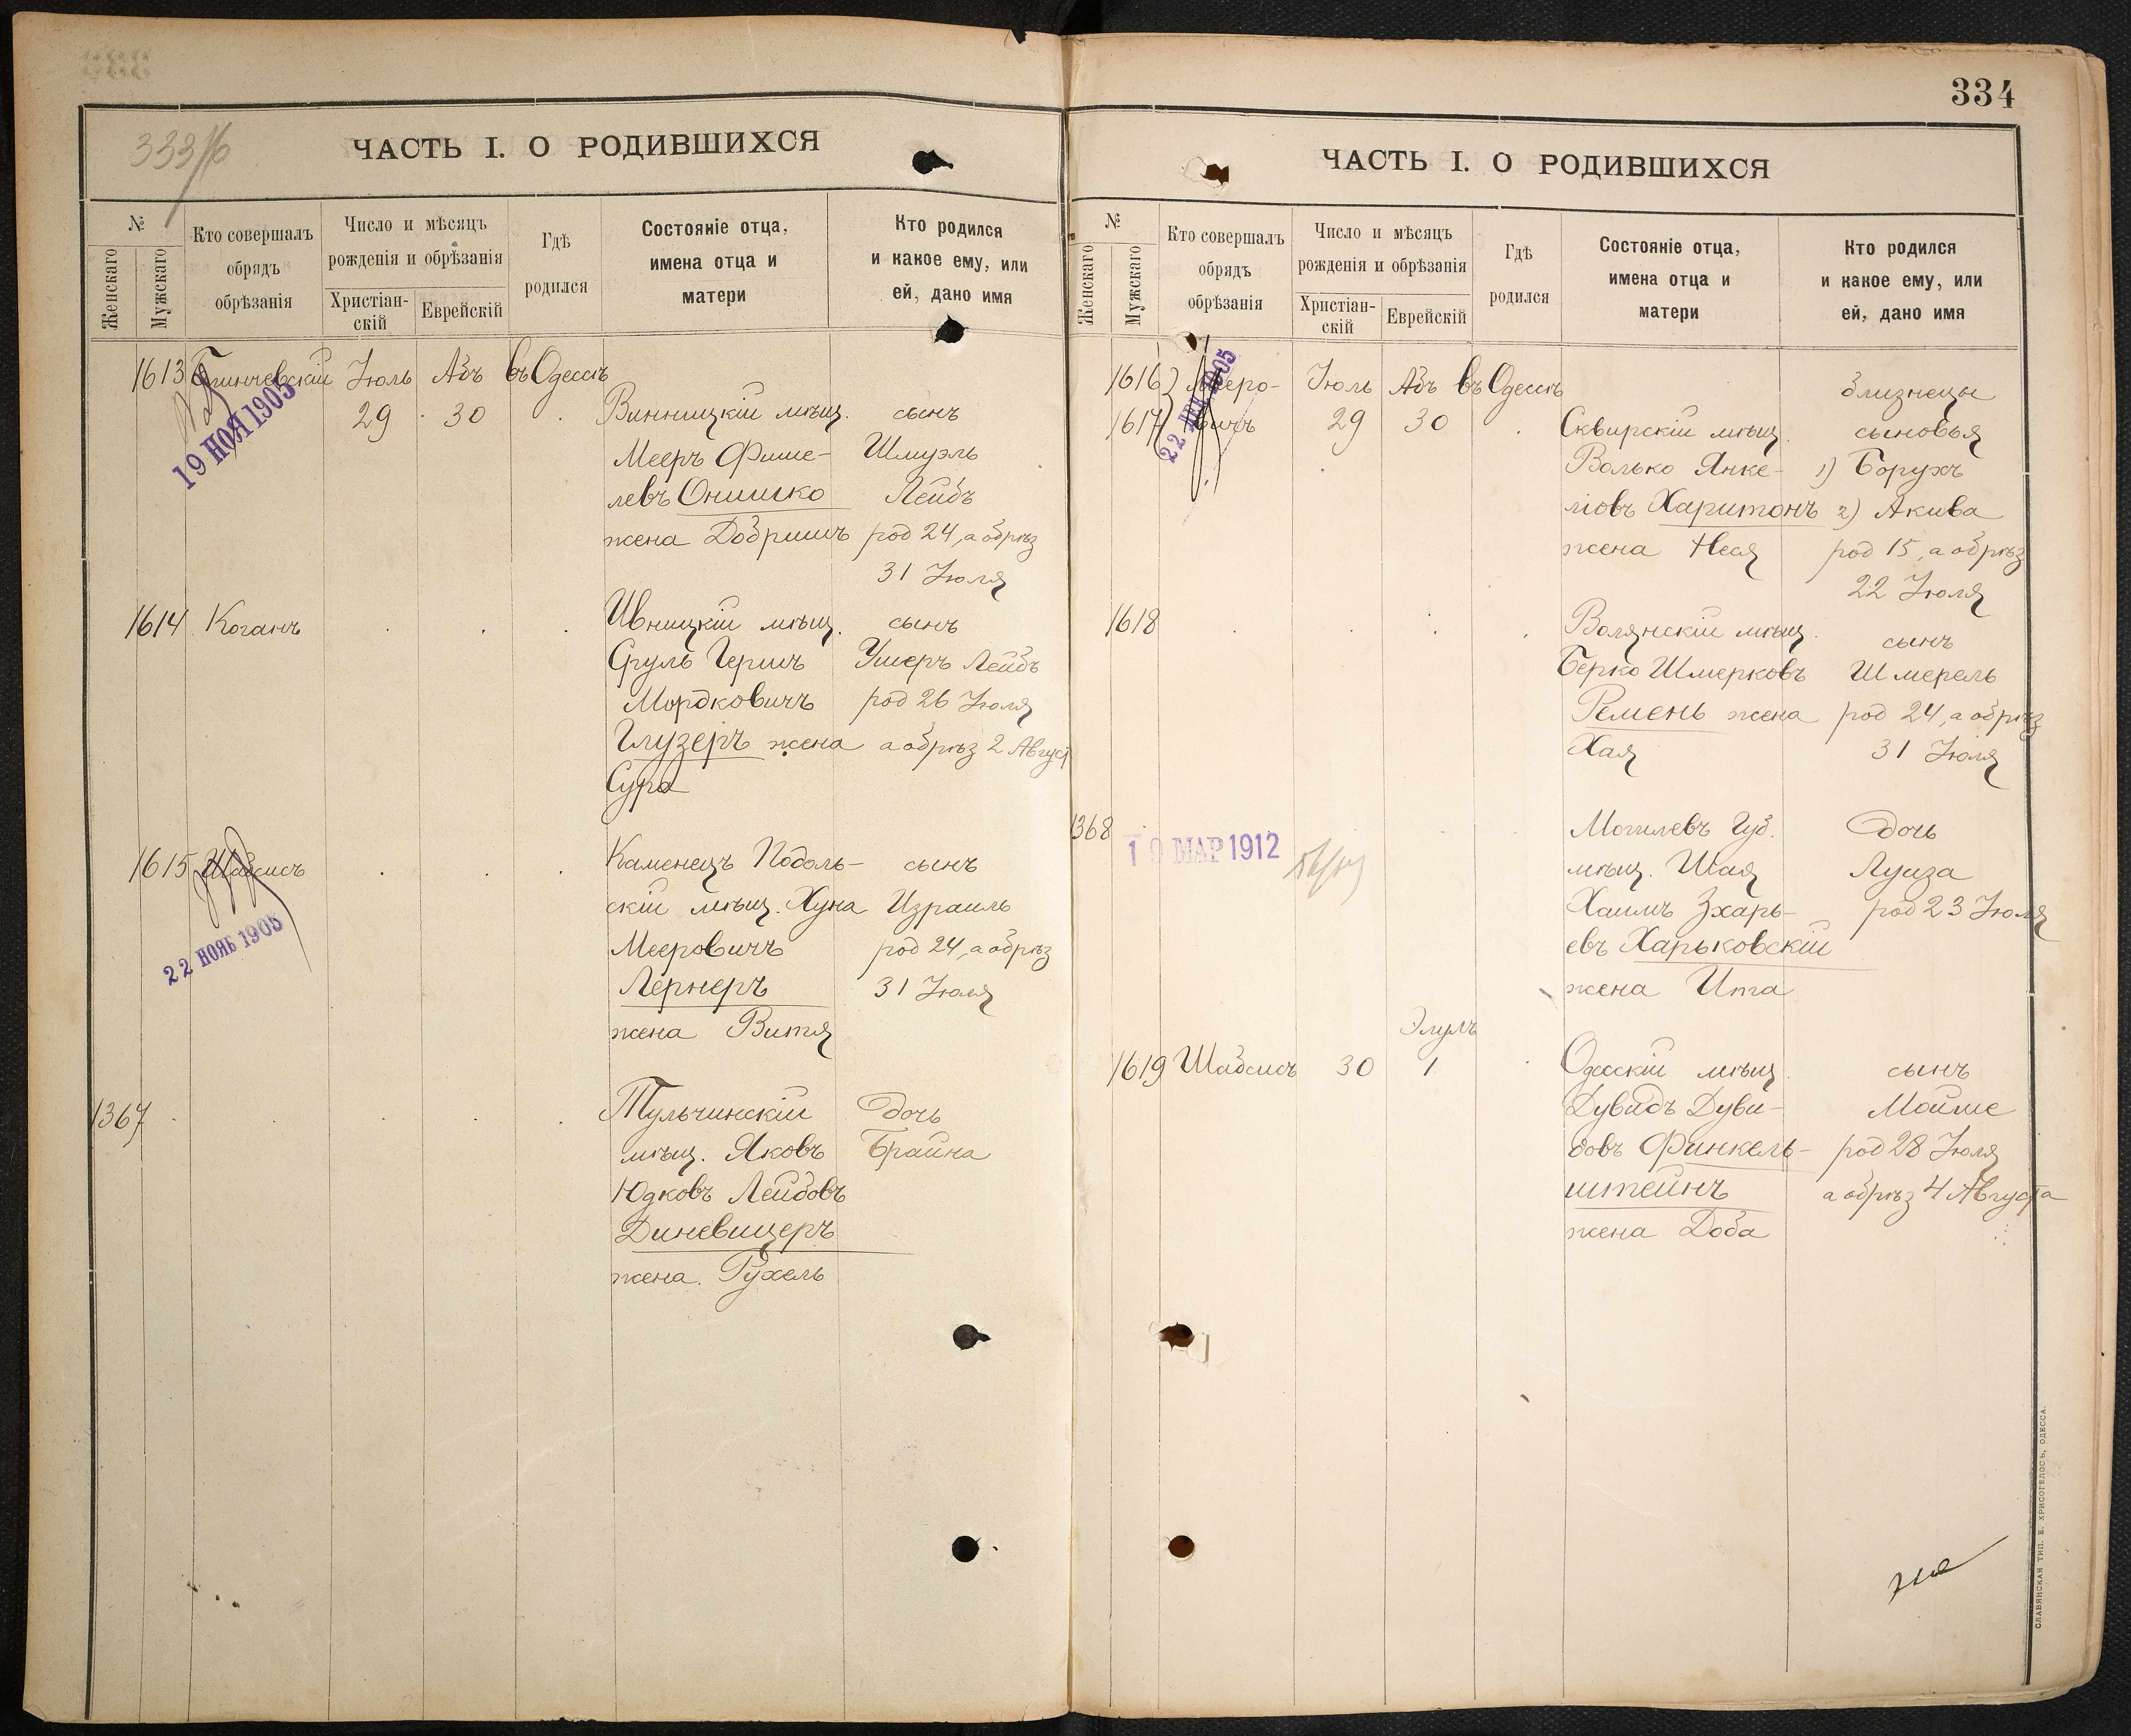 333/б
ЧАСТЬ I. О РОДИВШИХСЯ
№
Женскаго
Мужскаго
Кто совершалъ
обрядъ
обрѣзанія
Число и мѣсяцъ
рожденія и обрѣзанія
Христіан-
скій
Еврейскій
Гдѣ
родился
Состояніе отца,
имена отца и
матери
Кто родился
и какое ему, или
ей, дано имя
1613
Іюль Абъ въ Одессѣ
19 НОЯ 1905
29 30
Винницкій мѣщ.
Мееръ Фише-
левъ Онишко
жена Добришъ
сынъ
Шмуэль
Лейбъ
род 24, а обрѣз
31 Іюля
1614 Коганъ
Ивницкій мѣщ.
Сруль Гершъ
Мордковичъ
Глузеръ жена
Сура
сынъ
Ушеръ Лейбъ
род 26 Іюля
а обрѣз 2 Август
1615 Шабсисъ
22 НОЯБ 1905
Каменецъ Подоль-
скій мѣщ. Хуна
Мееровичъ
Лернеръ
жена Витя
сынъ
Израиль
род 24, а обрѣз
31 Іюля
1367
Тульчинскій
мѣщ. Яковъ
Юдковъ Лейбовъ
Диневицеръ
жена Рухель
дочь
Брайна
334
ЧАСТЬ I. О РОДИВШИХСЯ
№
Женскаго
Мужскаго
Кто совершалъ
обрядъ
обрѣзанія
Число и мѣсяцъ
рожденія и обрѣзанія
Христіан-
скій
Еврейскій
Гдѣ
родился
Состояніе отца,
имена отца и
матери
Кто родился
и какое ему, или
ей, дано имя
1616) Мееро- Іюль Абъ въ Одессѣ
1617) вичъ 29 30
22 ДЕК 1905
Сквирскій мѣщ.
Волько Янке-
ліовъ Харитонъ
жена Неся
близнецы
сыновья
1) Борухъ
2) Акива
род 15, а обрѣз
22 Іюля
1618
Волянскій мѣщ.
Берко Шмерковъ
Ремень жена
Хая
сынъ
Шмерель
род 24, а обрѣз
31 Іюля
1368
19 МАР 1912
Могилевъ Губ.
мѣщ. Шая
Хаимъ Зхарь-
евъ Харьковскій
жена Ита
дочь
Луиза
род 23 Іюля
Элулъ
1619 Шабсисъ 30 1
Одесскій мѣщ.
Дувидъ Дуви-
довъ Финкель-
штейнъ
жена Доба
сынъ
Мойше
род 28 Іюля
а обрѣз 4 Августа
СЛАВЯНСКАЯ ТИП. Е. ХРИСОГЕЛОСЪ, ОДЕССА.